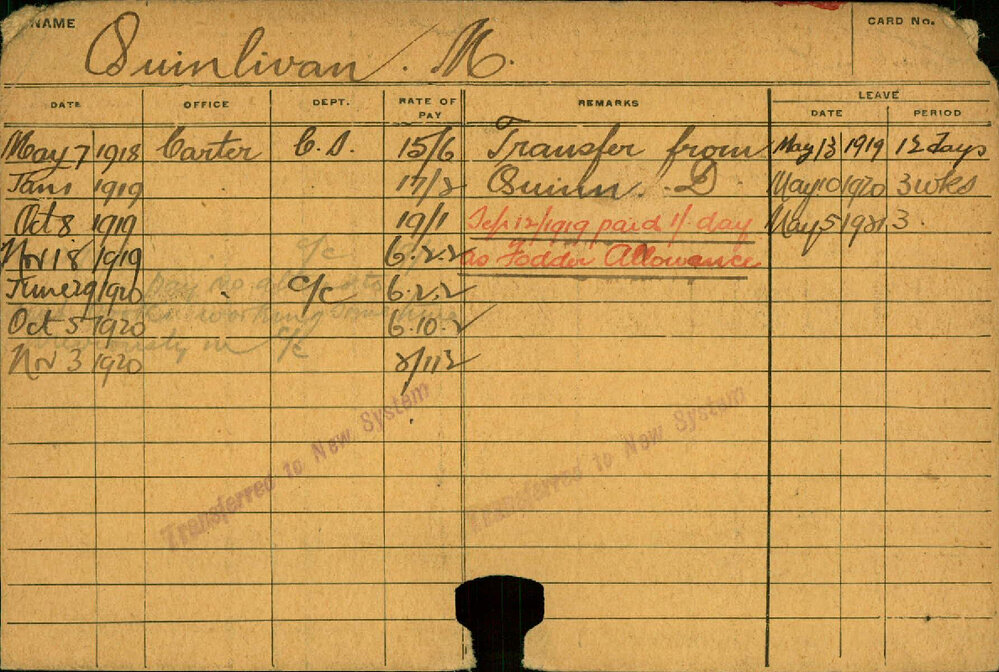 NAME
CARD No.
Quinlivan. M.
DATE OFFICE DEPT. RATE OF PAY REMARKS LEAVE DATE PERIOD
May 7 1918 Carter C.S. 15/6 Transfer from May 13 1919 12 days
Jan 1 1919 17/2 Quinn. D. May 10 1920 3 wks
Oct 8 1919 19/1 Sep 12/1919 paid 1/- day May 5 1921 3.
Nov 18 1919 c/c 6.2.2 as Fodder Allowance
June 29 1920 " c/c 6.2.2
Oct 5 1920 working 6.10.2
Nov 3 1920 previously in c/c
Transferred to New System
Transferred to New System